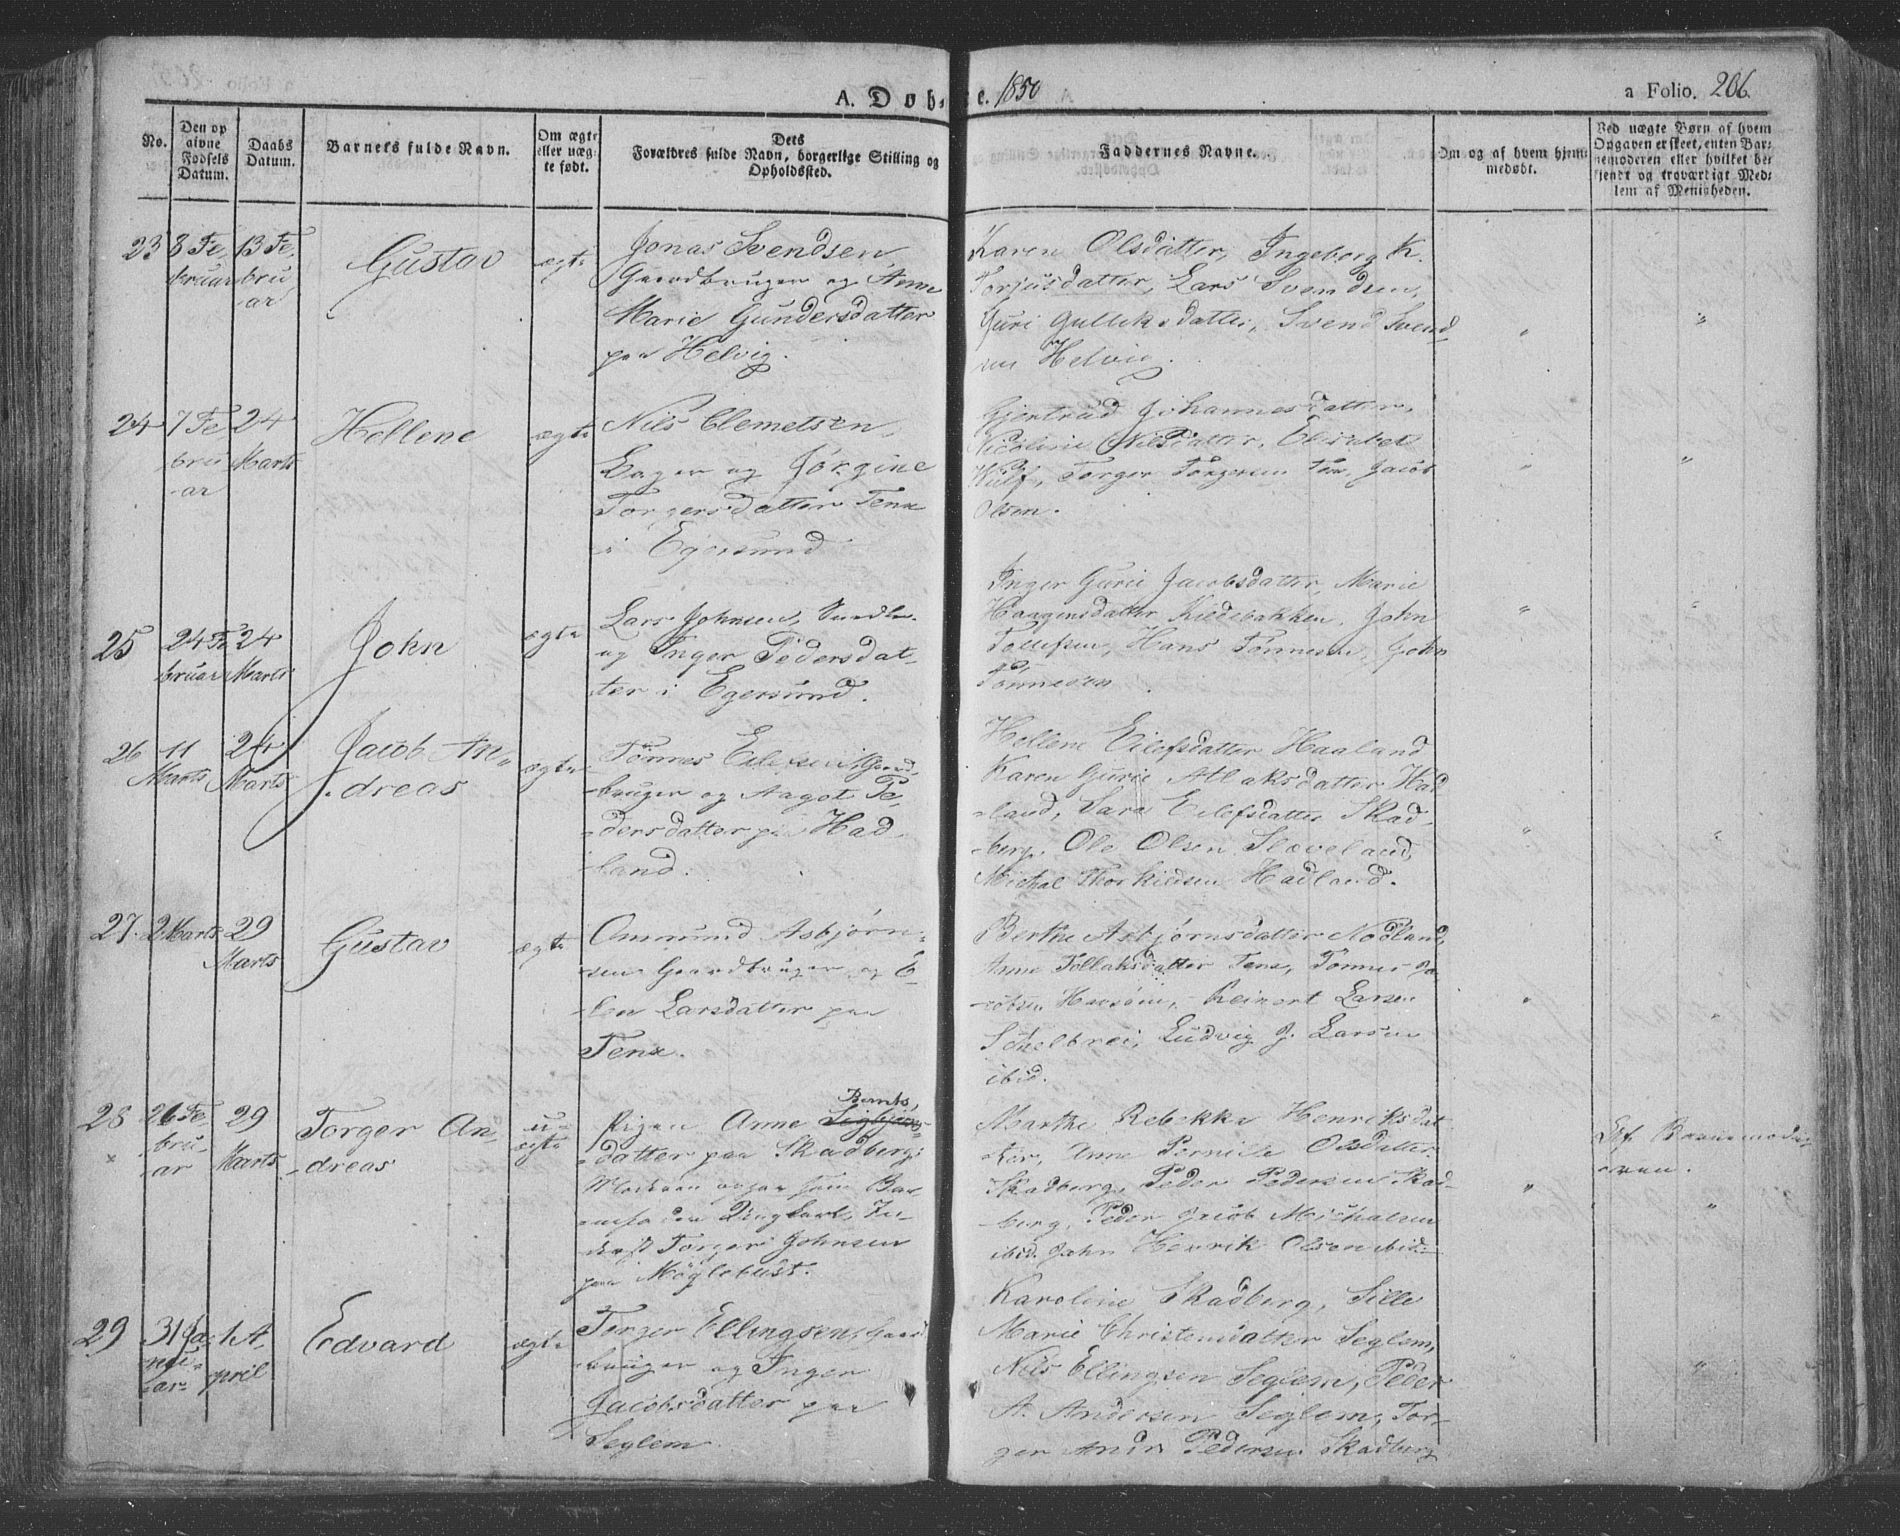 A. Døbte. 1850
a Folio. 206.
No.
Den opgivne Fødsels Datum.
Daabs Datum.
Barnets fulde Navn.
Om ægte eller uægte født.
Dets Forældres fulde Navn, borgerlige Stilling og Opholdssted.
Faddernes Navne.
Om og af hvem hjemmedøbt.
Ved uægte Børn af hvem Opgaven er skeet, enten Barnemoderen eller hvilket bekjendt og troværdigt Medlem af Menigheden.
23
8 Fe-
bruar
13 Fe-
bru
ar
Gustav
ægte
Jonas Svendsen,
Gaardbruger og Anne
Marie Gundersdatter
paa Helvig.
Karen Olsdatter, Ingeborg K.
Torjusdatter, Lars Svendsen,
Guri Gulleksdatter, Svend Svend
sen Helvig.
24
7 Fe
bru
-ar
24
Marts
Hellene
ægte
Nils Clemetsen,
og Jørgine
Torgersdatter Tenæ
i Egersund
Gjertrud Johannesdatter,
Nicoline Nilsdatter, Elisabet
Wulf, Torger Torgersen Jacob
Olsen.
25
24 Fe
bruar
24
Marts
John
ægte
Lars Johnsen,
og Inger Pedersdat-
ter i Egersund.
Inger Gurie Jacobsdatter, Marie
Haagensdatter Kildebakken, John
Tollefsen, Hans Tønnesen, John
Tønnesen
26
11
Marts
24
Marts
Jacob An-
dreas
ægte
Tønnes Eilefsen, Gaard
bruger og Aagot Pe-
dersdatter paa Had-
land.
Hellene Eilefsdatter Haaland
Karen Gurie Atlaksdatter Had
land, Sara Eilefsdatter Skad-
berg, Ole Olsen Sleveland,
Michal Thorkildsen Hadland.
27.
2 Marts
29
Marts
Gustav
ægte
Ommund Asbjørn-
sen Gaardbruger og E-
len Larsdatter paa
Tenæ.
Berthe Asbjørnsdatter Nodland,
Anne Tollaksdatter Tenæ, Tønnes Ja-
cobsen Reinert Larsen
Skelbrei, Ludvig J. Larsen
ibid.
28
26 Fe-
bru-
ar
29
Marts
Torger An-
dreas
u-
ægte
Pigen Anne Sigbjørns
Bernts,
datter paa Skadberg.
Moderen opgav som Bar-
nefader Ungkarl,
Torger Johnsen
paa Møglebust.
Marthe Rebekka Henriksdat
ter, Anne Pernille Olsdatter
Skadberg, Peder Pedersen Skad-
berg, Peder Jacob Michalsen
ibid. John Henrik Olsen ibid.
Af Barnemode-
ren.
29
31 Ja-
nu-
ar
1 A-
pril
Edvard
ægte
Torger Ellingsen, Gaard
bruger og Inger
Jacobsdatter paa
Seglem.
Karoline Skadberg, Sille
Marie Christensdatter Seglem,
Nils Ellingsen Seglem, Peder
A. Andersen Seglem, Tor-
ger Andr. Pedersen Skadberg